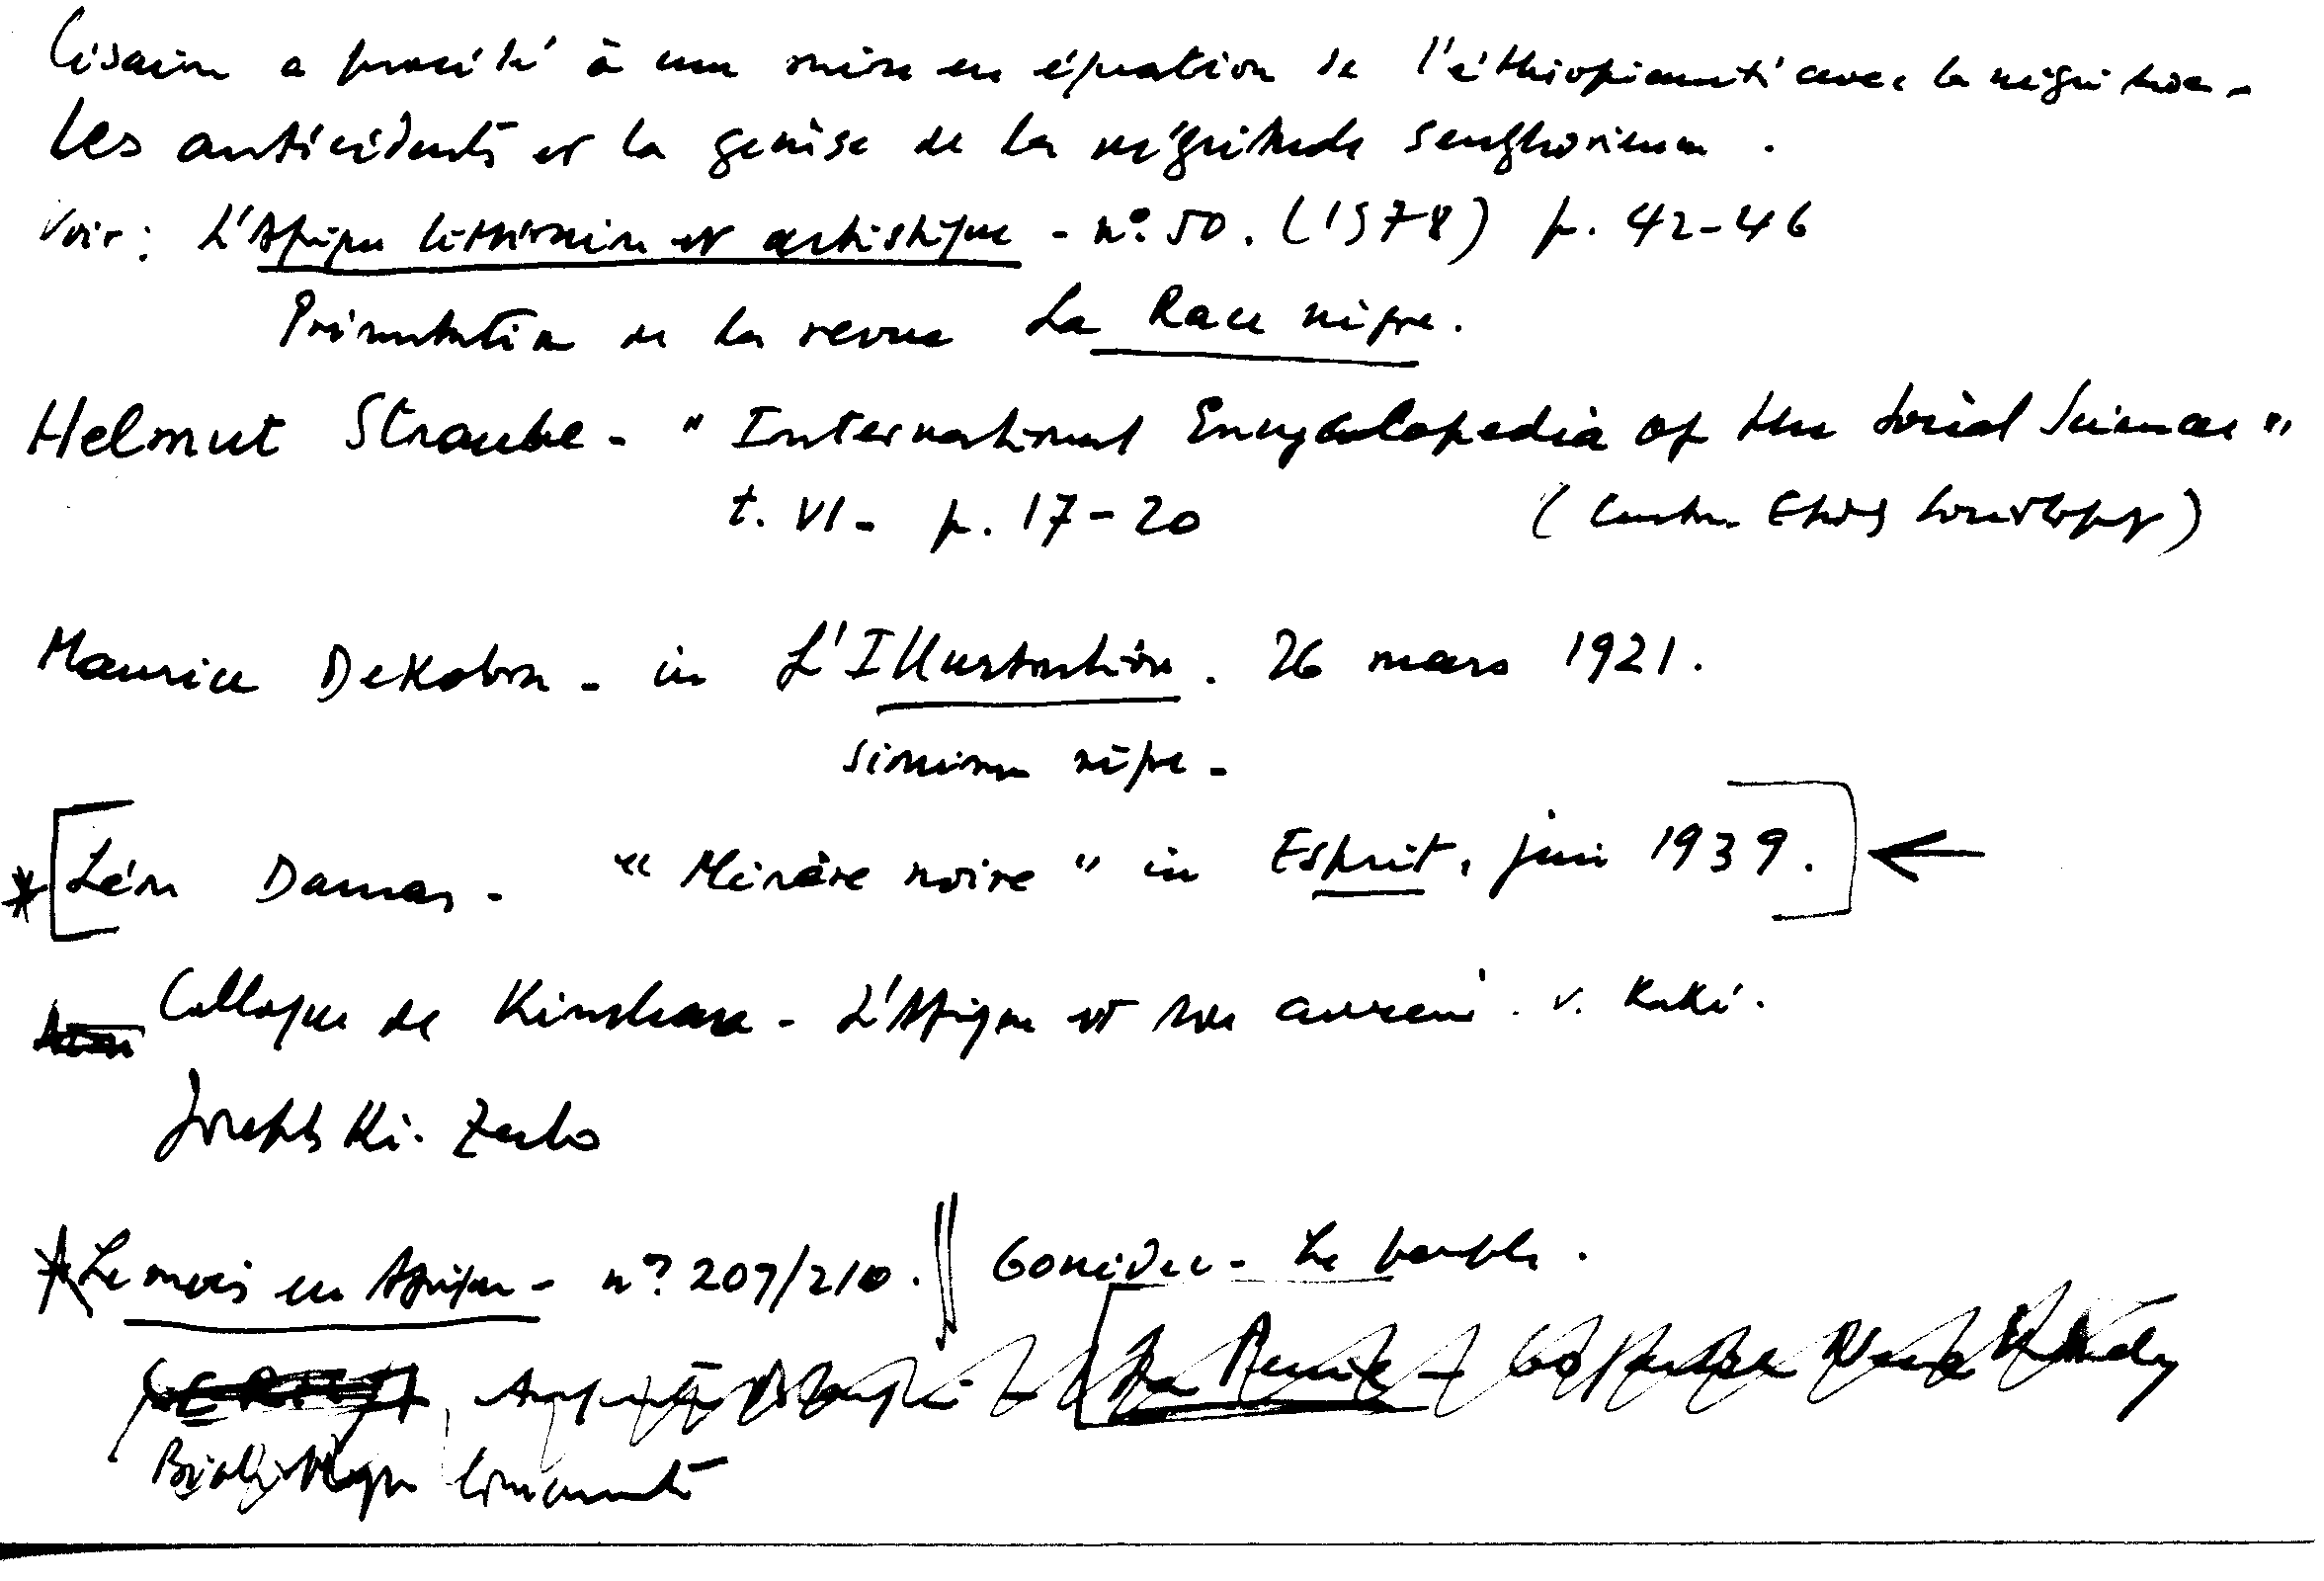 Césaire a procédé à une mise en équation de l'éthiopianité avec la négritude -
Les antécédents et la genèse de la négritude senghorienne .
Voir : L'Afrique littéraire et artistique - n° 50 . (1978) p. 42-46
Présentation de la revue La Race nègre.
Helmut Straube - "International Encyclopedia of the Social Sciences"
t. VI - p. 17-20 (Centre Etudes Sociologiques)
Maurice DeKobra - in L'Illustration . 26 mars 1921 .
nègre -
* [Léon Damas - "Misère noire" in Esprit, juin 1939 .] ←
Colloque de Kinshasa - L'Afrique et son avenir . v. KoKi .
Joseph Ki-Zerbo
* Le mois en Afrique - n° 209/210 . || Gonidec - Le
[La
Bibliothèque